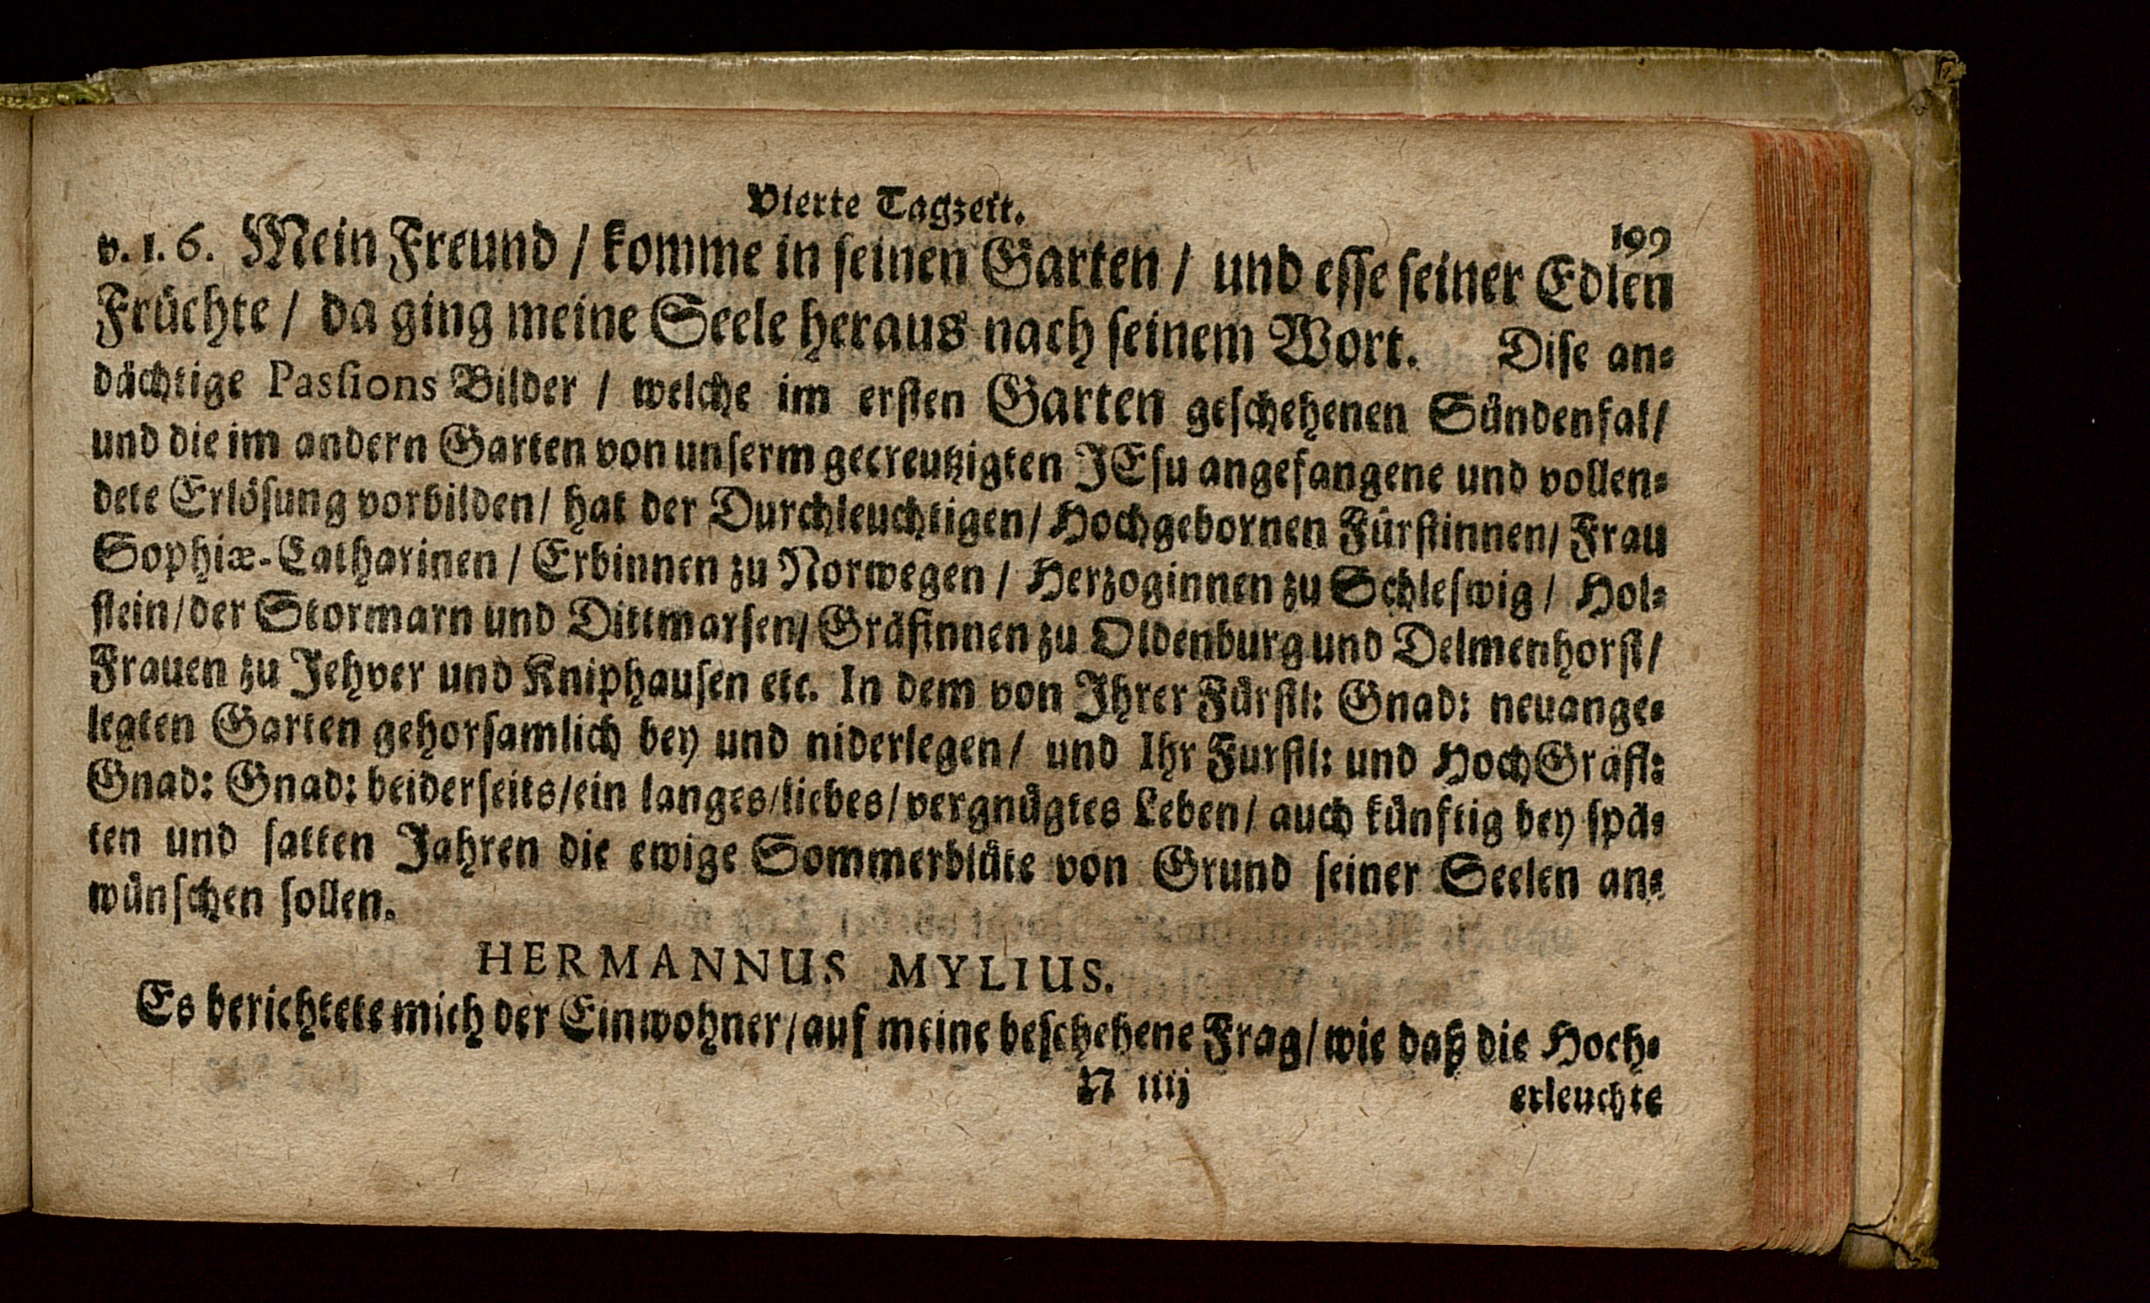 Vierte Tagzeit.
199
v. 1. 6. Mein Freund / komme in seinen Garten / und esse seiner Edlen
Früchte / da ging meine Seele heraus nach seinem Wort. Dise an-
dächtige Passions Bilder / welche im ersten Garten geschehenen Sündenfal/
und die im andern Garten von unserm gecreutzigten JEsu angefangene und vollen-
dete Erlösung vorbilden / hat der Durchleuchtigen / Hochgebornen Fürstinnen / Frau
Sophiæ-Catharinen / Erbinnen zu Norwegen / Herzoginnen zu Schleswig / Hol-
stein / der Stormarn und Dittmarsen / Gräfinnen zu Oldenburg und Delmenhorst /
Frauen zu Jehver und Kniphausen etc. In dem von Ihrer Fürstl: Gnad: neuange-
legten Garten gehorsamlich bey und niderlegen / und Ihr Furstl: und HochGräfl:
Gnad: Gnad: beiderseits / ein langes / liebes / vergnügtes Leben / auch künftig bey spä-
ten und satten Jahren die ewige Sommerblüte von Grund seiner Seelen an-
wünschen sollen.
HERMANNUS MYLIUS.
Es berichtete mich der Einwohner / auf meine beschehene Frag / wie daß die Hoch-
N iiij
erleuchte